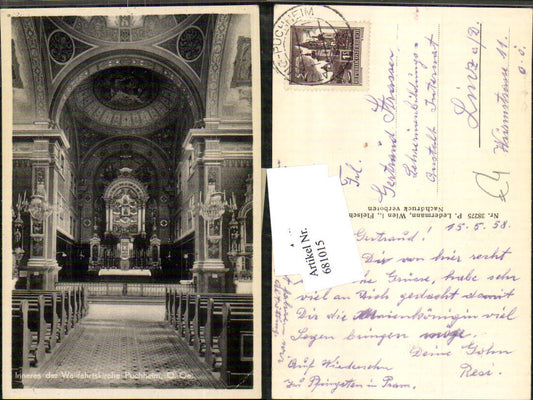 Inneres der Wallfahrtskirche Puchheim, O. Oe.
PUCHHEIM
Frl.
Gertraud
Lehrerinnenbildungs-
anstalt Internat
Linz a/D.
11
O. Ö.
Nr. 38275 P. Ledermann, Wien I., Fleisch
Nachdruck verboten
Artikel Nr.
681015
15. 5. 58.
Gertraud!
Dir von hier recht
Grüsse, habe sehr
viel an Dich gedacht damit
Dir die Maienkönigin viel
Segen bringen möge.
Deine
Auf Wiedersehn Resi
zu Pfingsten in Pram.